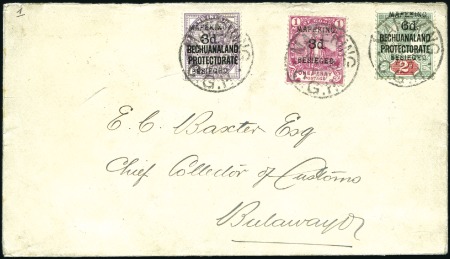 1
MAFEKING
6d
BECHUANALAND
PROTECTORATE
BESIEGED
MAFEKING
3d
BESIEGED
MAFEKING
6d
BECHUANALAND
PROTECTORATE
BESIEGED
E. C. Baxter Esq
Chief Collector of Customs
Bulawayo